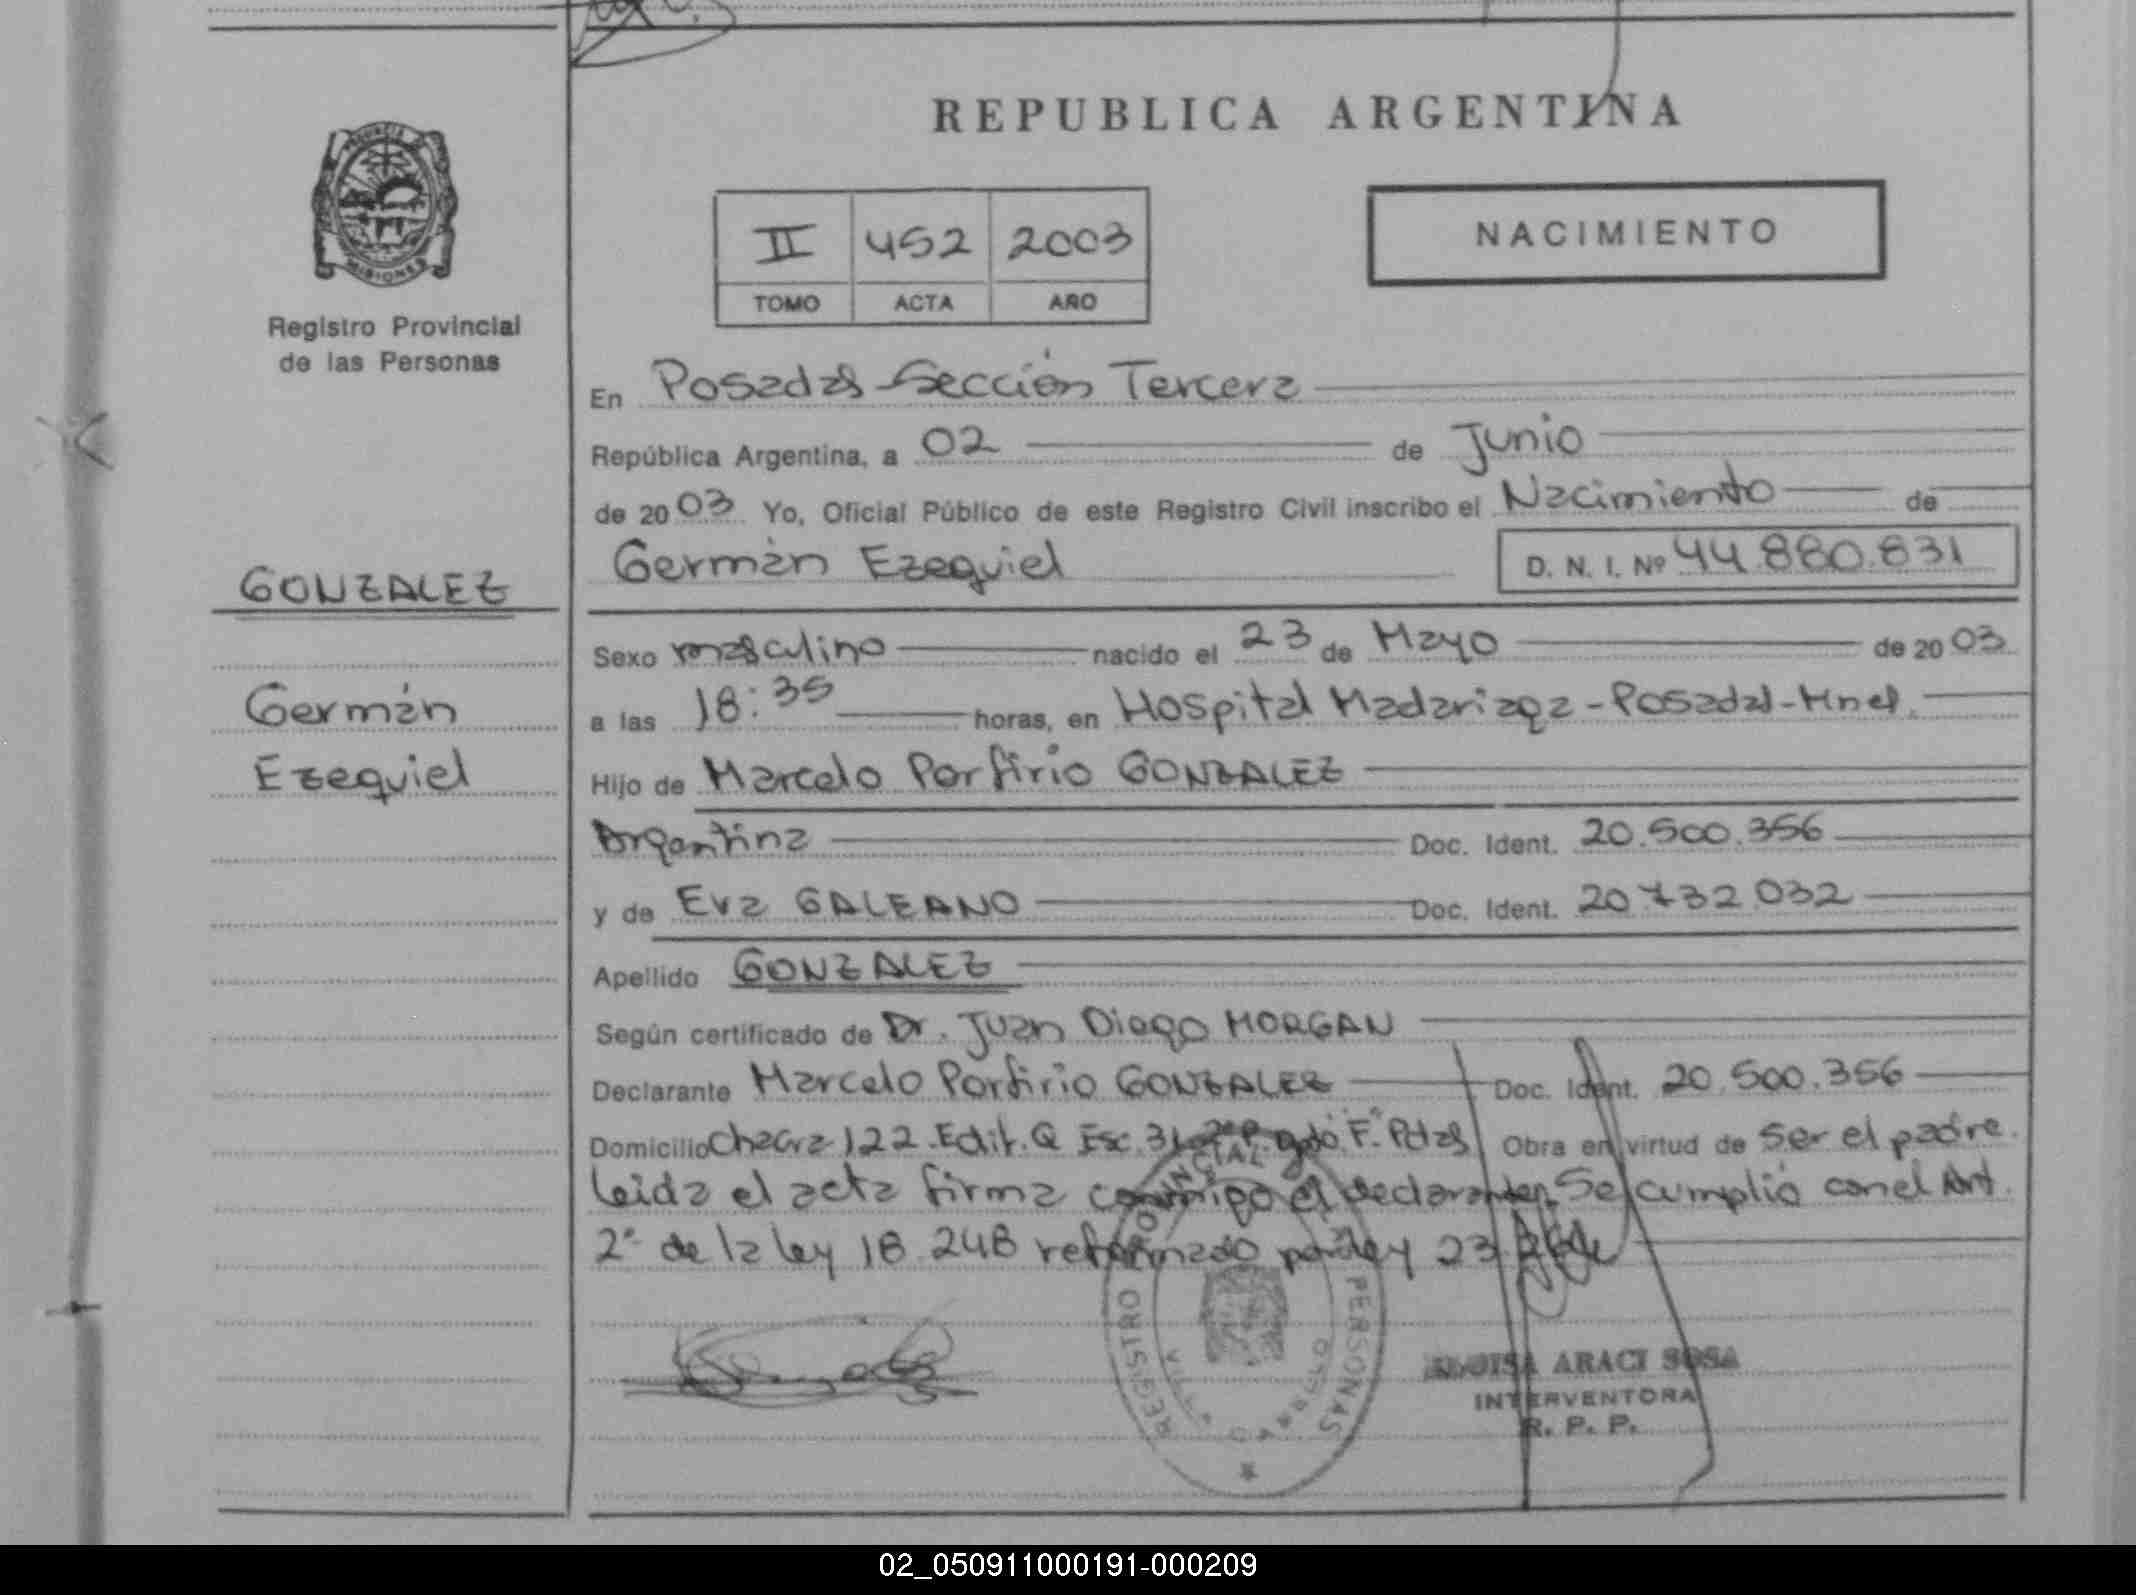 REPUBLICA ARGENTINA
PROVINCIA
MISIONES
Registro Provincial
de las Personas
II 452 2003
TOMO ACTA AÑO
NACIMIENTO
En Posadas Sección Tercera
República Argentina, a 02 de Junio
de 2003 Yo, Oficial Público de este Registro Civil inscribo el Nacimiento de
Germán Ezequiel D. N. I. Nº 44.880.831
GONZALEZ
Germán
Ezequiel
Sexo masculino nacido el 23 de Mayo de 2003
a las 18:35 horas, en Hospital Madariaga-Posadas-Mnes.
Hijo de Marcelo Porfirio GONZALEZ
Argentina Doc. Ident. 20.500.356
y de Eva GALEANO Doc. Ident. 20.732.032
Apellido GONZALEZ
Según certificado de Dr. Juan Diego MORGAN
Declarante Marcelo Porfirio GONZALEZ Doc. Ident. 20.500.356
Domicilio Chacra 122. Edif. Q Esc. 31 F. Pdas Obra en virtud de ser el padre.
Leida el acta firma conmigo el declarante. Se cumplió con el Art.
2º de la ley 18.248 reformado por ley 23
REGISTRO PROVINCIAL PERSONAS
ELOISA ARACI SOSA
INTERVENTORA
R. P. P.
02_050911000191-000209